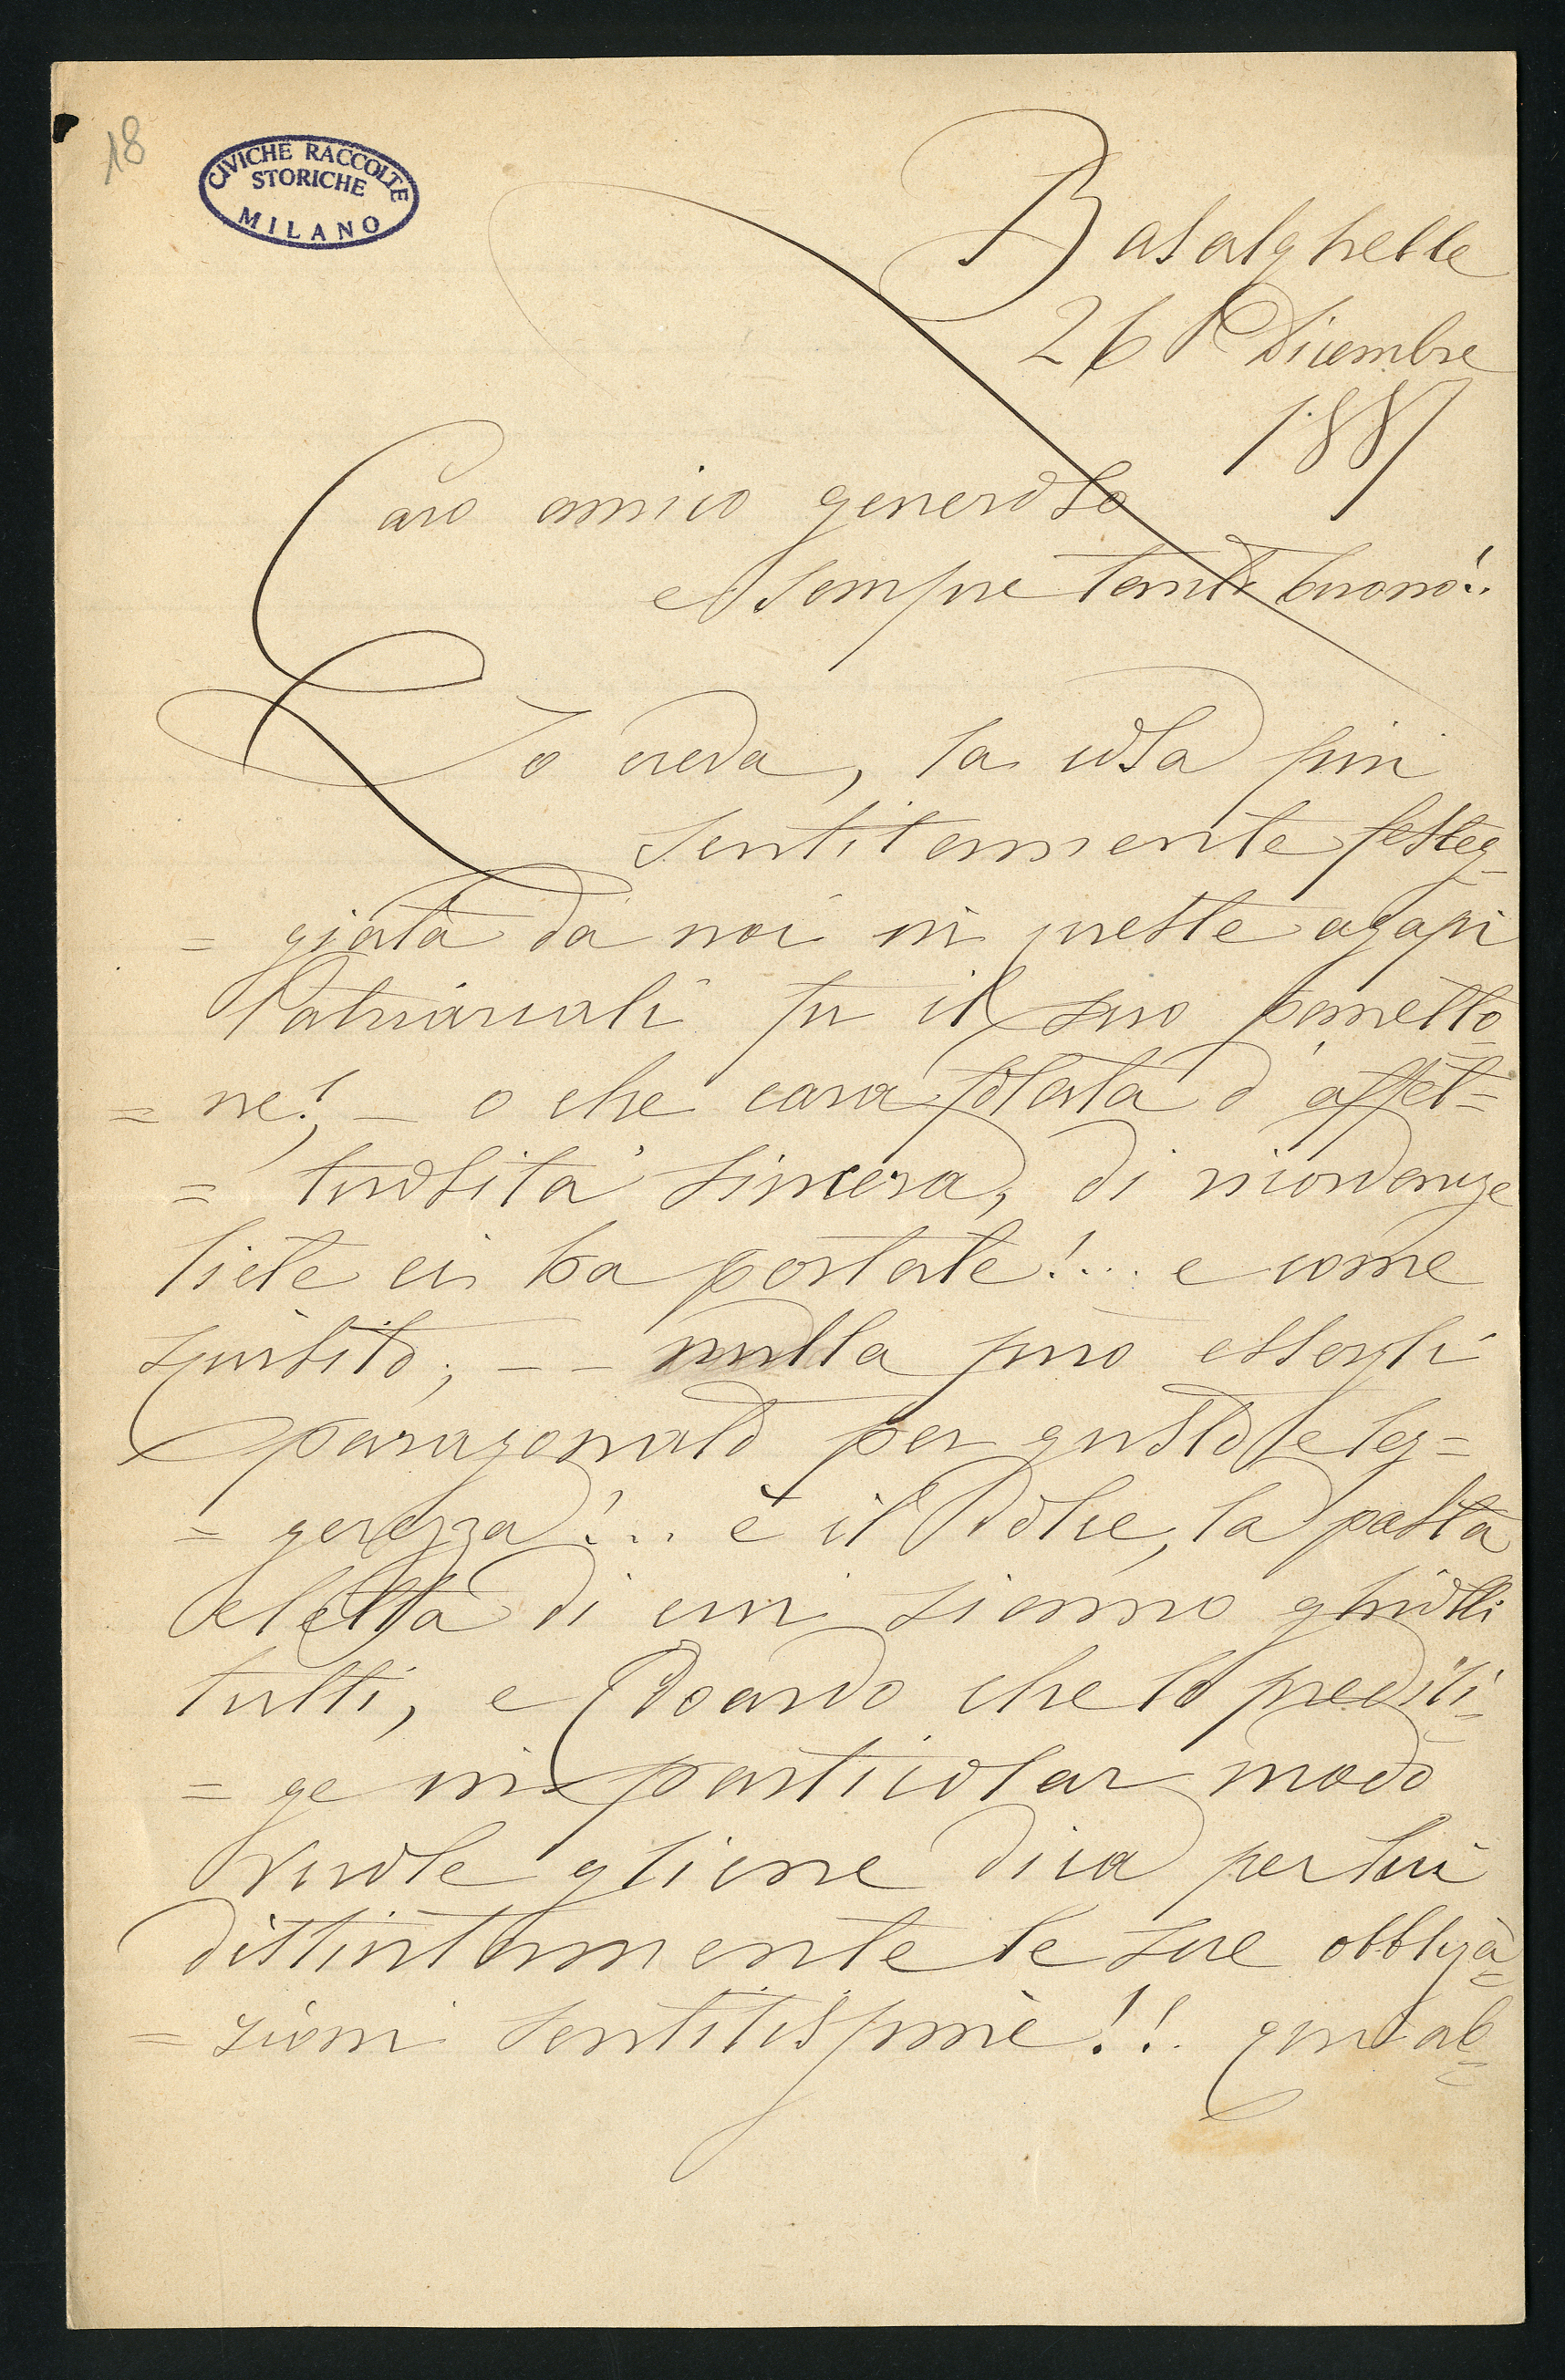 18
CIVICHE RACCOLTE
STORICHE
MILANO
Basalghelle
26 Dicembre
1887
Caro amico generoso
e sempre tanto buono!..
Lo creda, la cosa più
sentitamente festeg-
= giata da noi in queste agapi
Patriarcali fu il suo panetto-
= ne! - o che cara folata d'affet=
= tuosità sincera, di ricordanze
liete ci ha portate!... e come
squisito; - - nulla può essergli
paragonato per gusto e leg=
= gerezza!... è il Dolce, la pasta
eletta di cui siamo ghiotti
tutti, e Edoardo che lo predili-
= ge in particolar modo
vuole gliene dica per lui
distintamente le sue obbliga=
= zioni sentitissime!!.